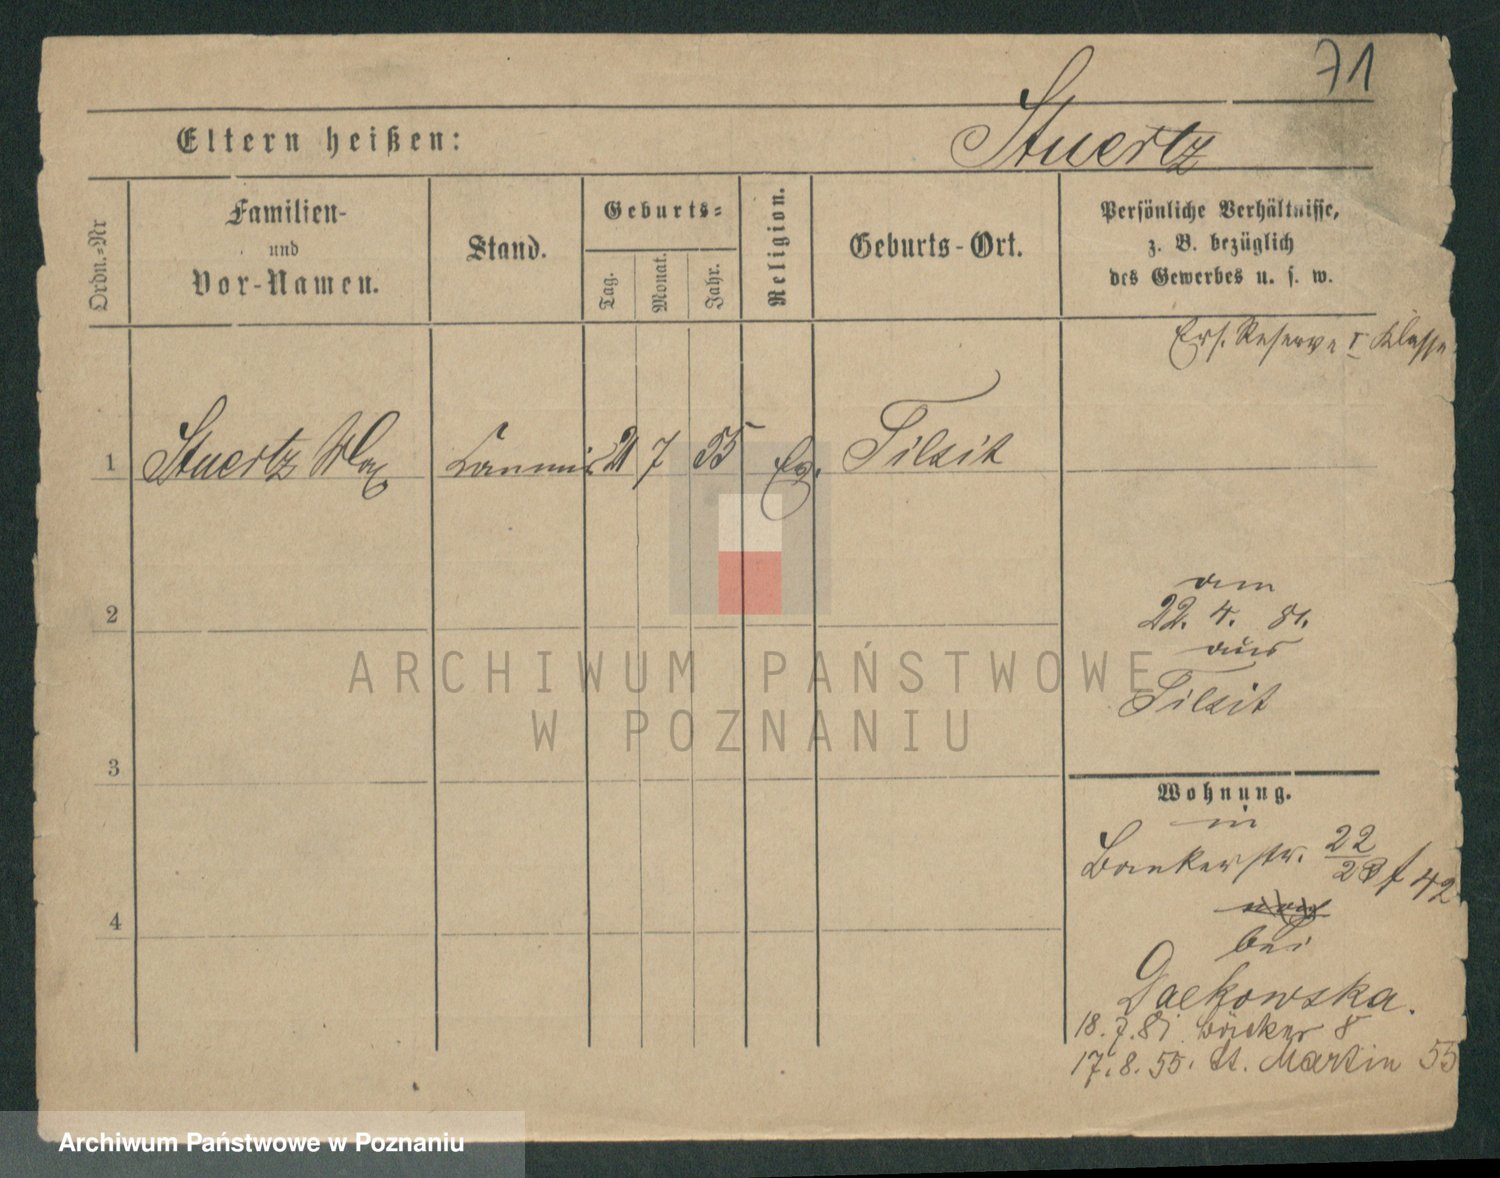 71
Stuertz
Eltern heißen:
Ordn.-Nr
Familien-
und
Vor-Namen.
Stand.
Geburts-
Tag.
Monat.
Jahr.
Religion.
Geburts-Ort.
Persönliche Verhältnisse,
z. B. bezüglich
des Gewerbes u. s. w.
Ers. Reserve I Klasse
1 Stuertz Max Commis 21 7 55 Ev. Tilsit
2
am
22. 4. 81.
aus
Tilsit
3
Wohnung.
in
Baeckerstr. 22
23 f 42
4
bei
Dackowska.
18. 7. 81. Bäcker 8
17. 8. 55. St. Martin 55
ARCHIWUM PAŃSTWOWE
W POZNANIU
Archiwum Państwowe w Poznaniu